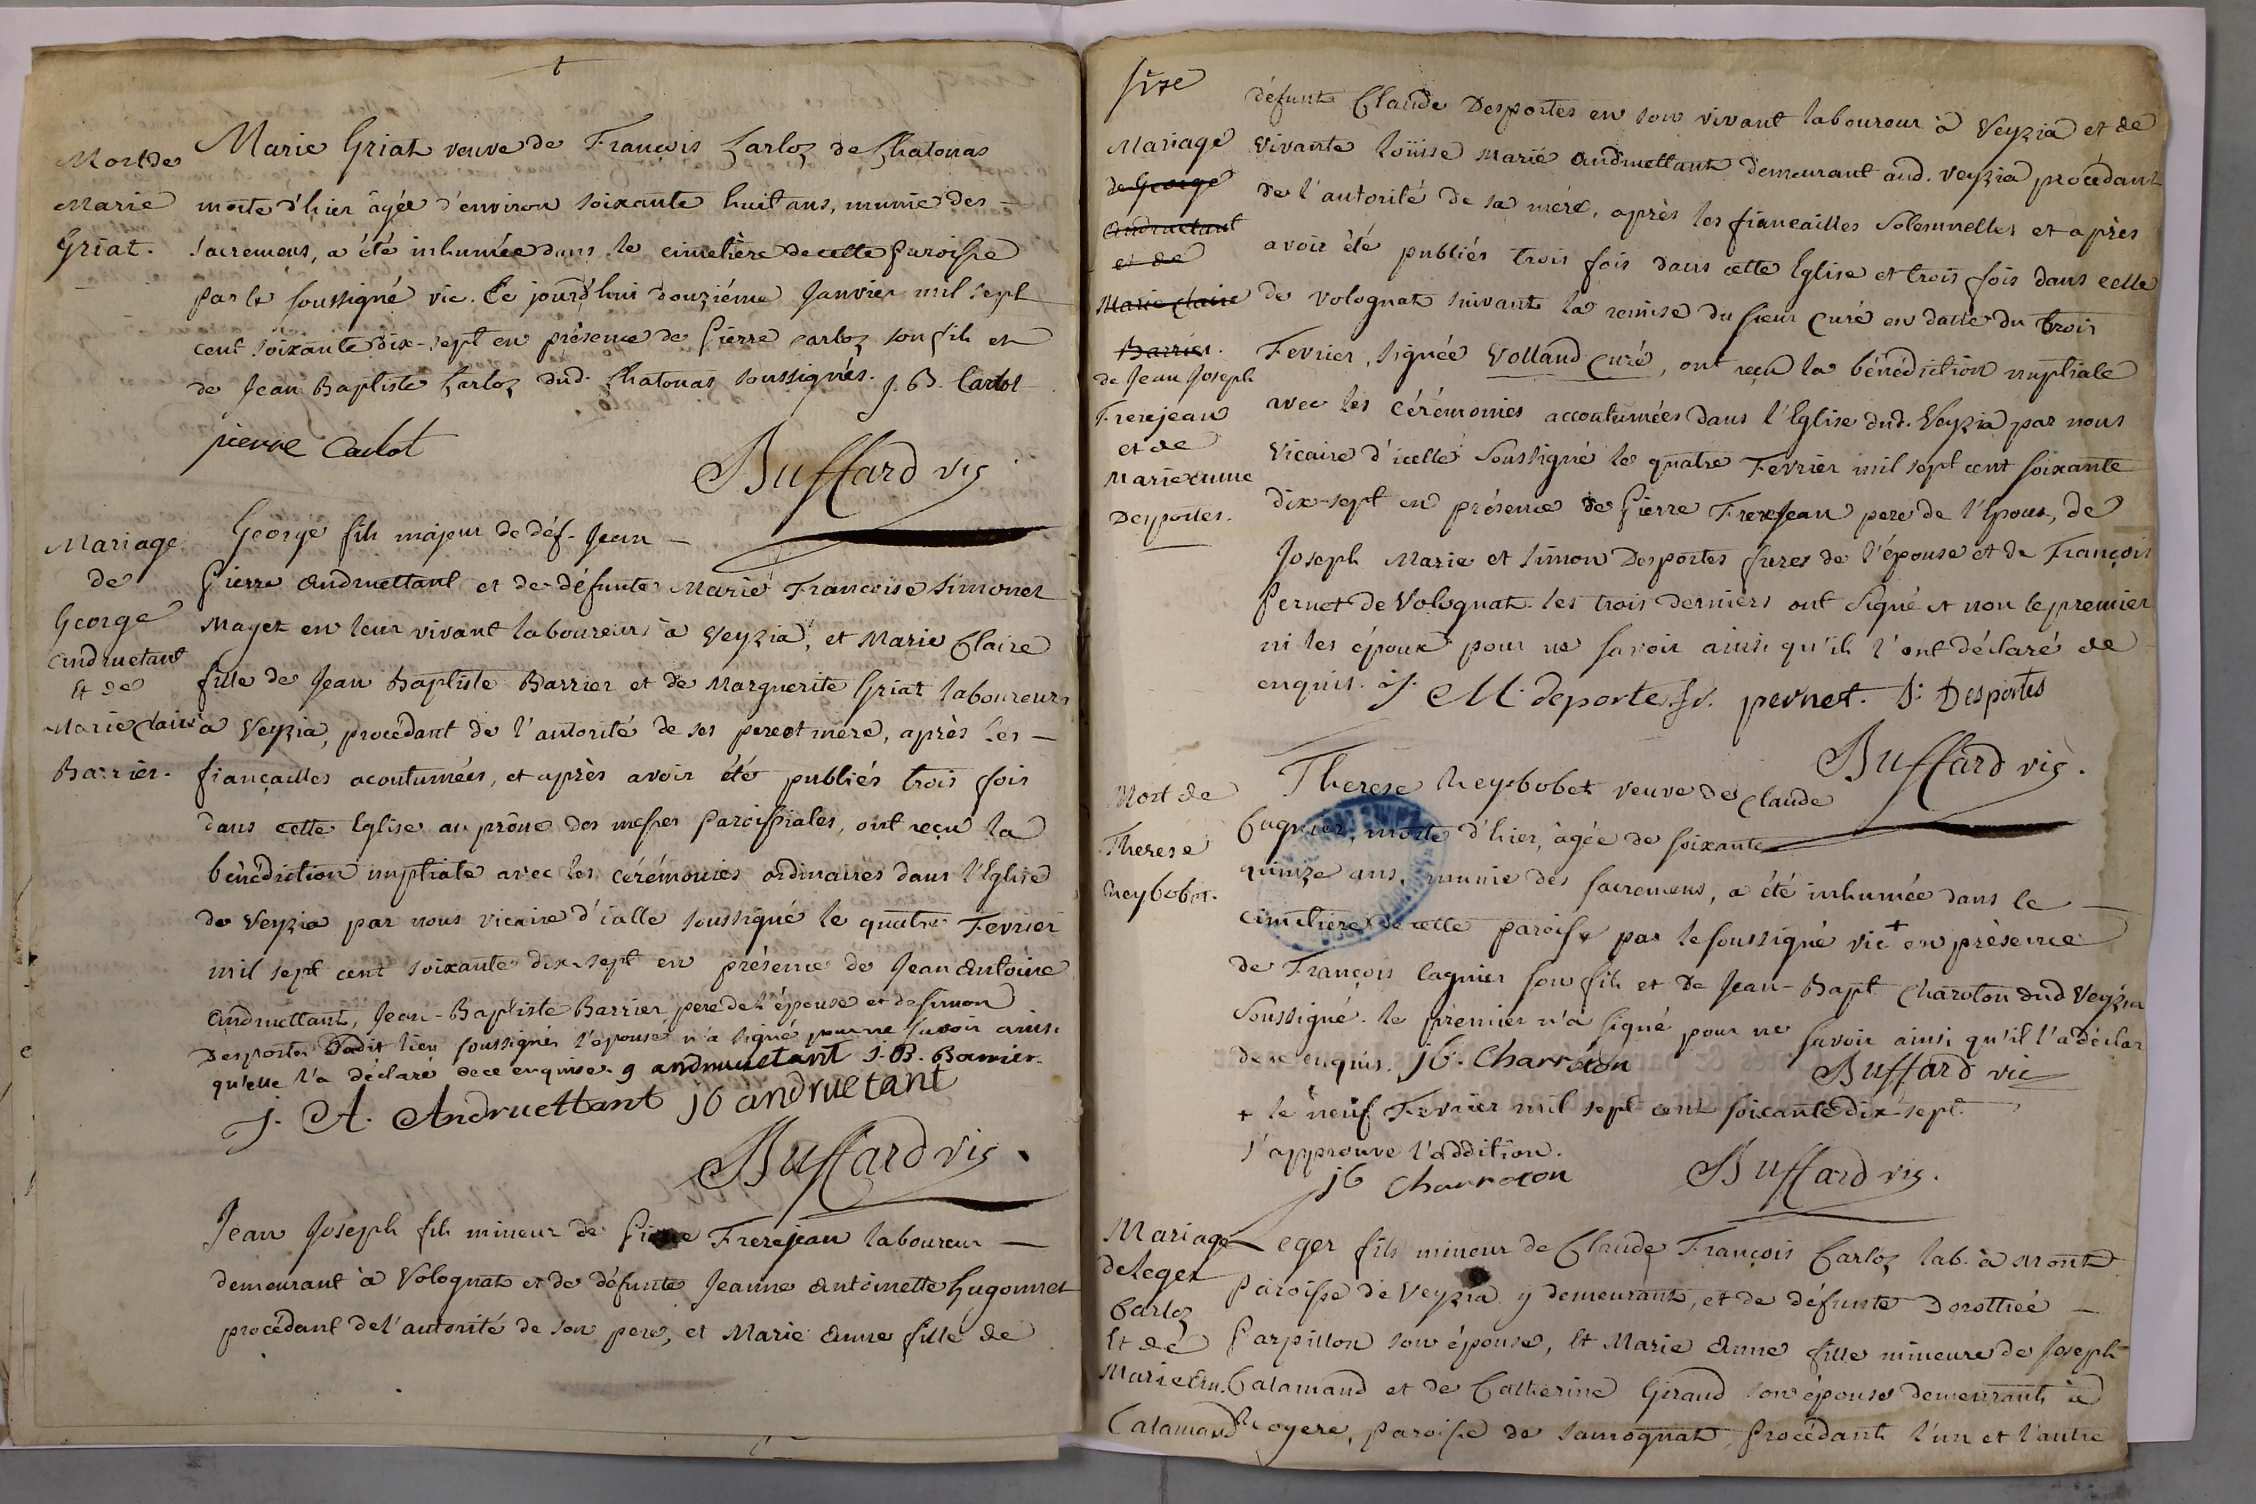 Mort de
Marie
Griat.
Marie Griat veuve de François Carloz de Chatonas
morte d'hier âgée d'environ soixante huit ans, munie des
sacremens, a été inhumée dans le cimetière de cette paroisse
par le soussigné vic. Ce jourd'hui douziéme Janvier mil sept
cent soixante dix-sept en présence de Pierre Carloz son fils et
de Jean Baptiste Carloz dud. Chatonas soussignés. J. B. Carlot
pierre Carlot
Buffard vic
Mariage
de
George
andruetant
Et de
Marie Claire
Barrier.
George fils majeur de déf. Jean
Pierre andruettant et de défunte Marie Françoise Simonet
Mayet en leur vivant laboureurs à Veyzia, et Marie Claire
fille de Jean Baptiste Barrier et de Marguerite Griat laboureurs
à Veyzia, procédant de l'autorité de ses pere et mère, après les
fiançailles acoutumées, et après avoir été publiés trois fois
dans cette Eglise au prône des messes paroissiales, ont reçu la
bénédiction nuptiale avec les cérémonies ordinaires dans l'Eglise
de Veyzia par nous vicaire d'icelle soussigné le quatre Fevrier
mil sept cent soixante dix-sept en présence de Jean Antoine
andruettant, Jean-Baptiste Barrier pere de l'épouse et de simon
Desportes dudit lieu soussignés l'épouse n'a signé pour ne savoir ainsi
qu'elle l'a déclaré de ce enquise. g andruettant J. B. Barrier
J. A. Andruettant jb andruetant
Buffard vic.
Jean Joseph fils mineur de Pierre Frerejean laboureur
demeurant à Volognat et de défunte Jeanne Antoinette Hugonnet
procédant de l'autorité de son pere, et Marie Anne fille de
size
Mariage
de George
andruetant
et de
Marie Claire
Barrier.
de Jean Joseph
Frerejean
et de
Marie anne
Desportes.
défunt Claude Desportes en son vivant laboureur à Veyzia et de
vivante Loüise Marie Andruettant demeurant aud. Veyzia procédant
de l'autorité de sa mére, après les fiancailles solemnelles et après
avoir été publiés trois fois dans cette Eglise et trois fois dans celle
de Volognat suivant la remise du sieur Curé en datte du trois
Fevrier, signée Volland Curé, ont reçu la bénédiction nuptiale
avec les Cérémonies accoutumées dans l'Eglise dud. Veyzia par nous
Vicaire d'icelle soussigné le quatre Fevrier mil sept cent soixante
dix-sept en présence de Pierre Frerejean pere de l'Epoux, de
Joseph Marie et simon Desportes freres de l'épouse et de François
Pernet de Volognat. les trois derniers ont signé et non le premier
ni les époux pour ne savoir ainsi qu'ils l'ont déclaré de
enquis. J. M. deporte. fr. pernet. S. Desportes
Buffard vic.
Mort de
Therese
Neybobet.
Therese Neybobet veuve de Claude
Cagnier, morte d'hier, âgée de soixante
quinze ans, munie des sacremens, a été inhumée dans le
cimetiere de cette paroisse par le soussigné vic + en présence
de François Cagnier son fils et de Jean-Bapt. Charoton dud Veyzia
Soussigné. le premier n'a signé pour ne savoir ainsi qu'il l'a déclar
de ce enquis. jb. Charroton
Buffard vic
+ le neuf Fevrier mil sept cent soixante dix-sept.
J'approuve l'addition.
jb Charroton
Buffard vic.
Mariage
de Leger
Carloz
Et de
Marie An.
Calamand
Leger fils mineur de Claude François Carloz lab. à Mont
paroisse de Veyzia y demeurant, et de défunte Dorothée
Carpillon son épouse, Et Marie Anne fille mineure de Joseph
Calamand et de Catherine Giraud son épouse demeurants à
paroisse de Samognat, Procédants l'un et l'autre